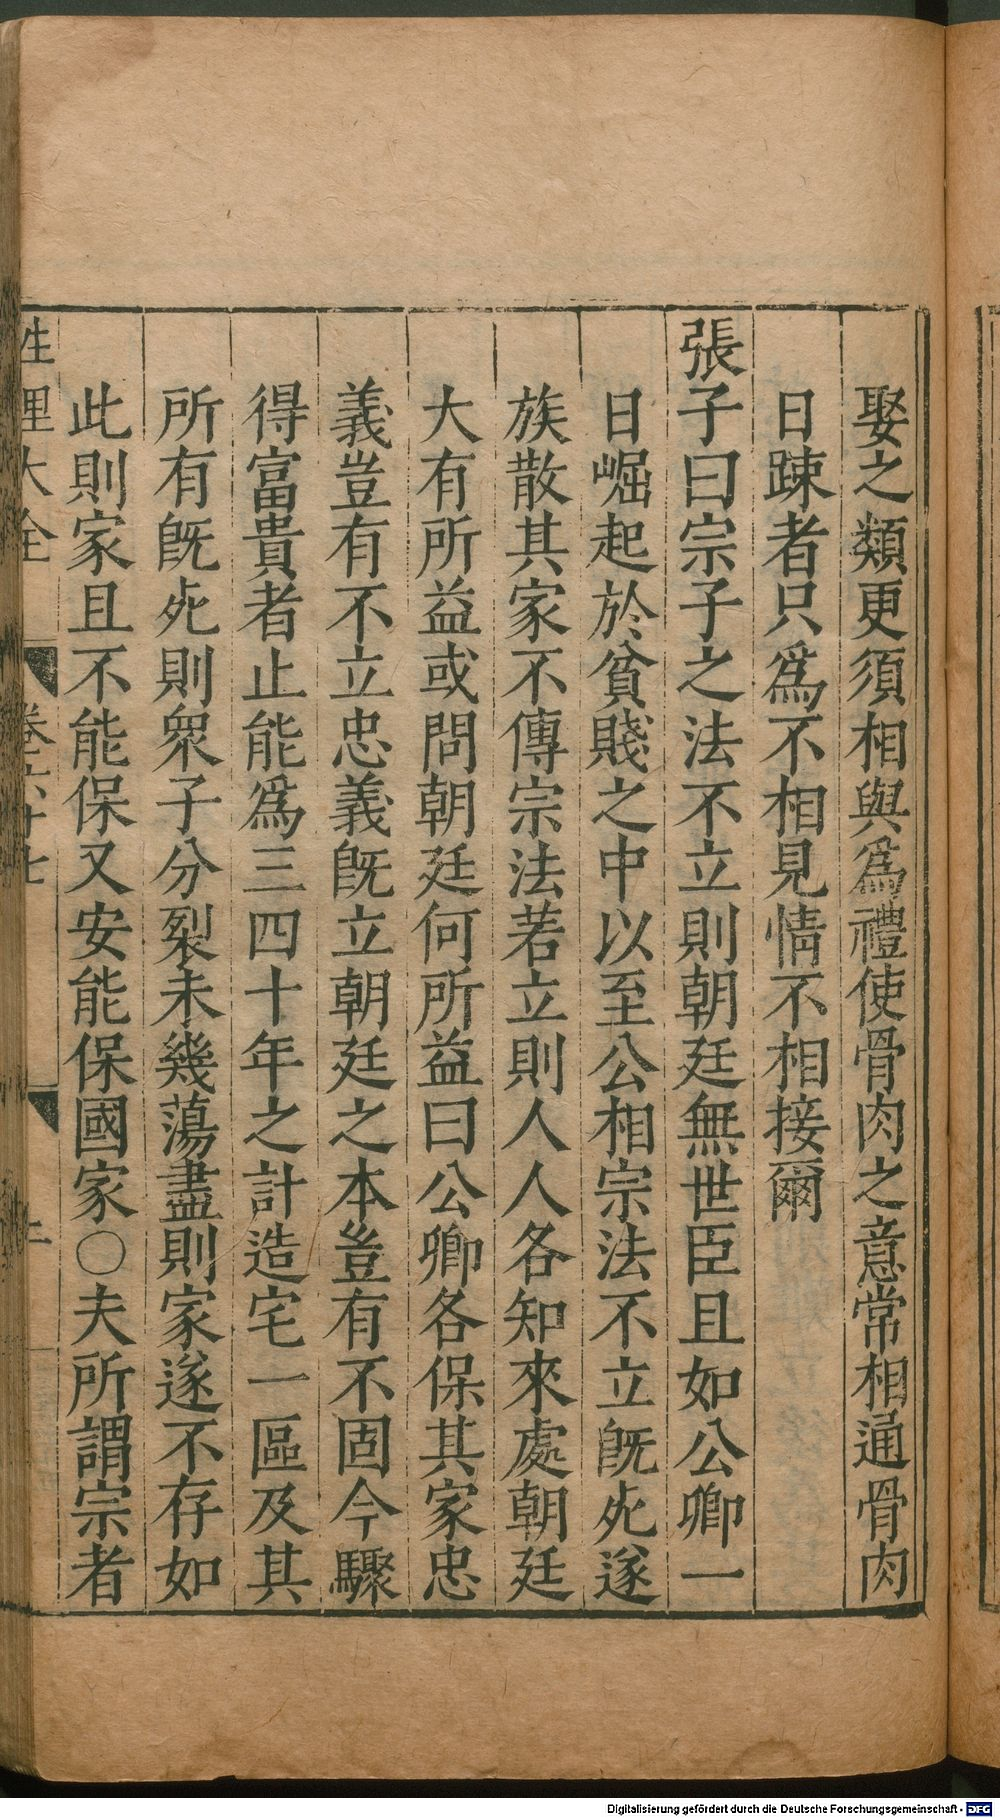 娶之類更須相與為禮使骨肉之意常相通骨肉
日踈者只為不相見情不相接爾
張子曰宗子之法不立則朝廷無世臣且如公卿一
日崛起於貧賤之中以至公相宗法不立旣死遂
族散其家不傳宗法若立則人人各知來處朝廷
大有所益或問朝廷何所益曰公卿各保其家忠
義豈有不立忠義旣立朝廷之本豈有不固今驟
得富貴者止能為三四十年之計造宅一區及其
所有旣死則衆子分裂未幾蕩盡則家遂不存如
此則家且不能保又安能保國家○夫所謂宗者
性理大全 卷六十七
Digitalisierung gefördert durch die Deutsche Forschungsgemeinschaft - DFG